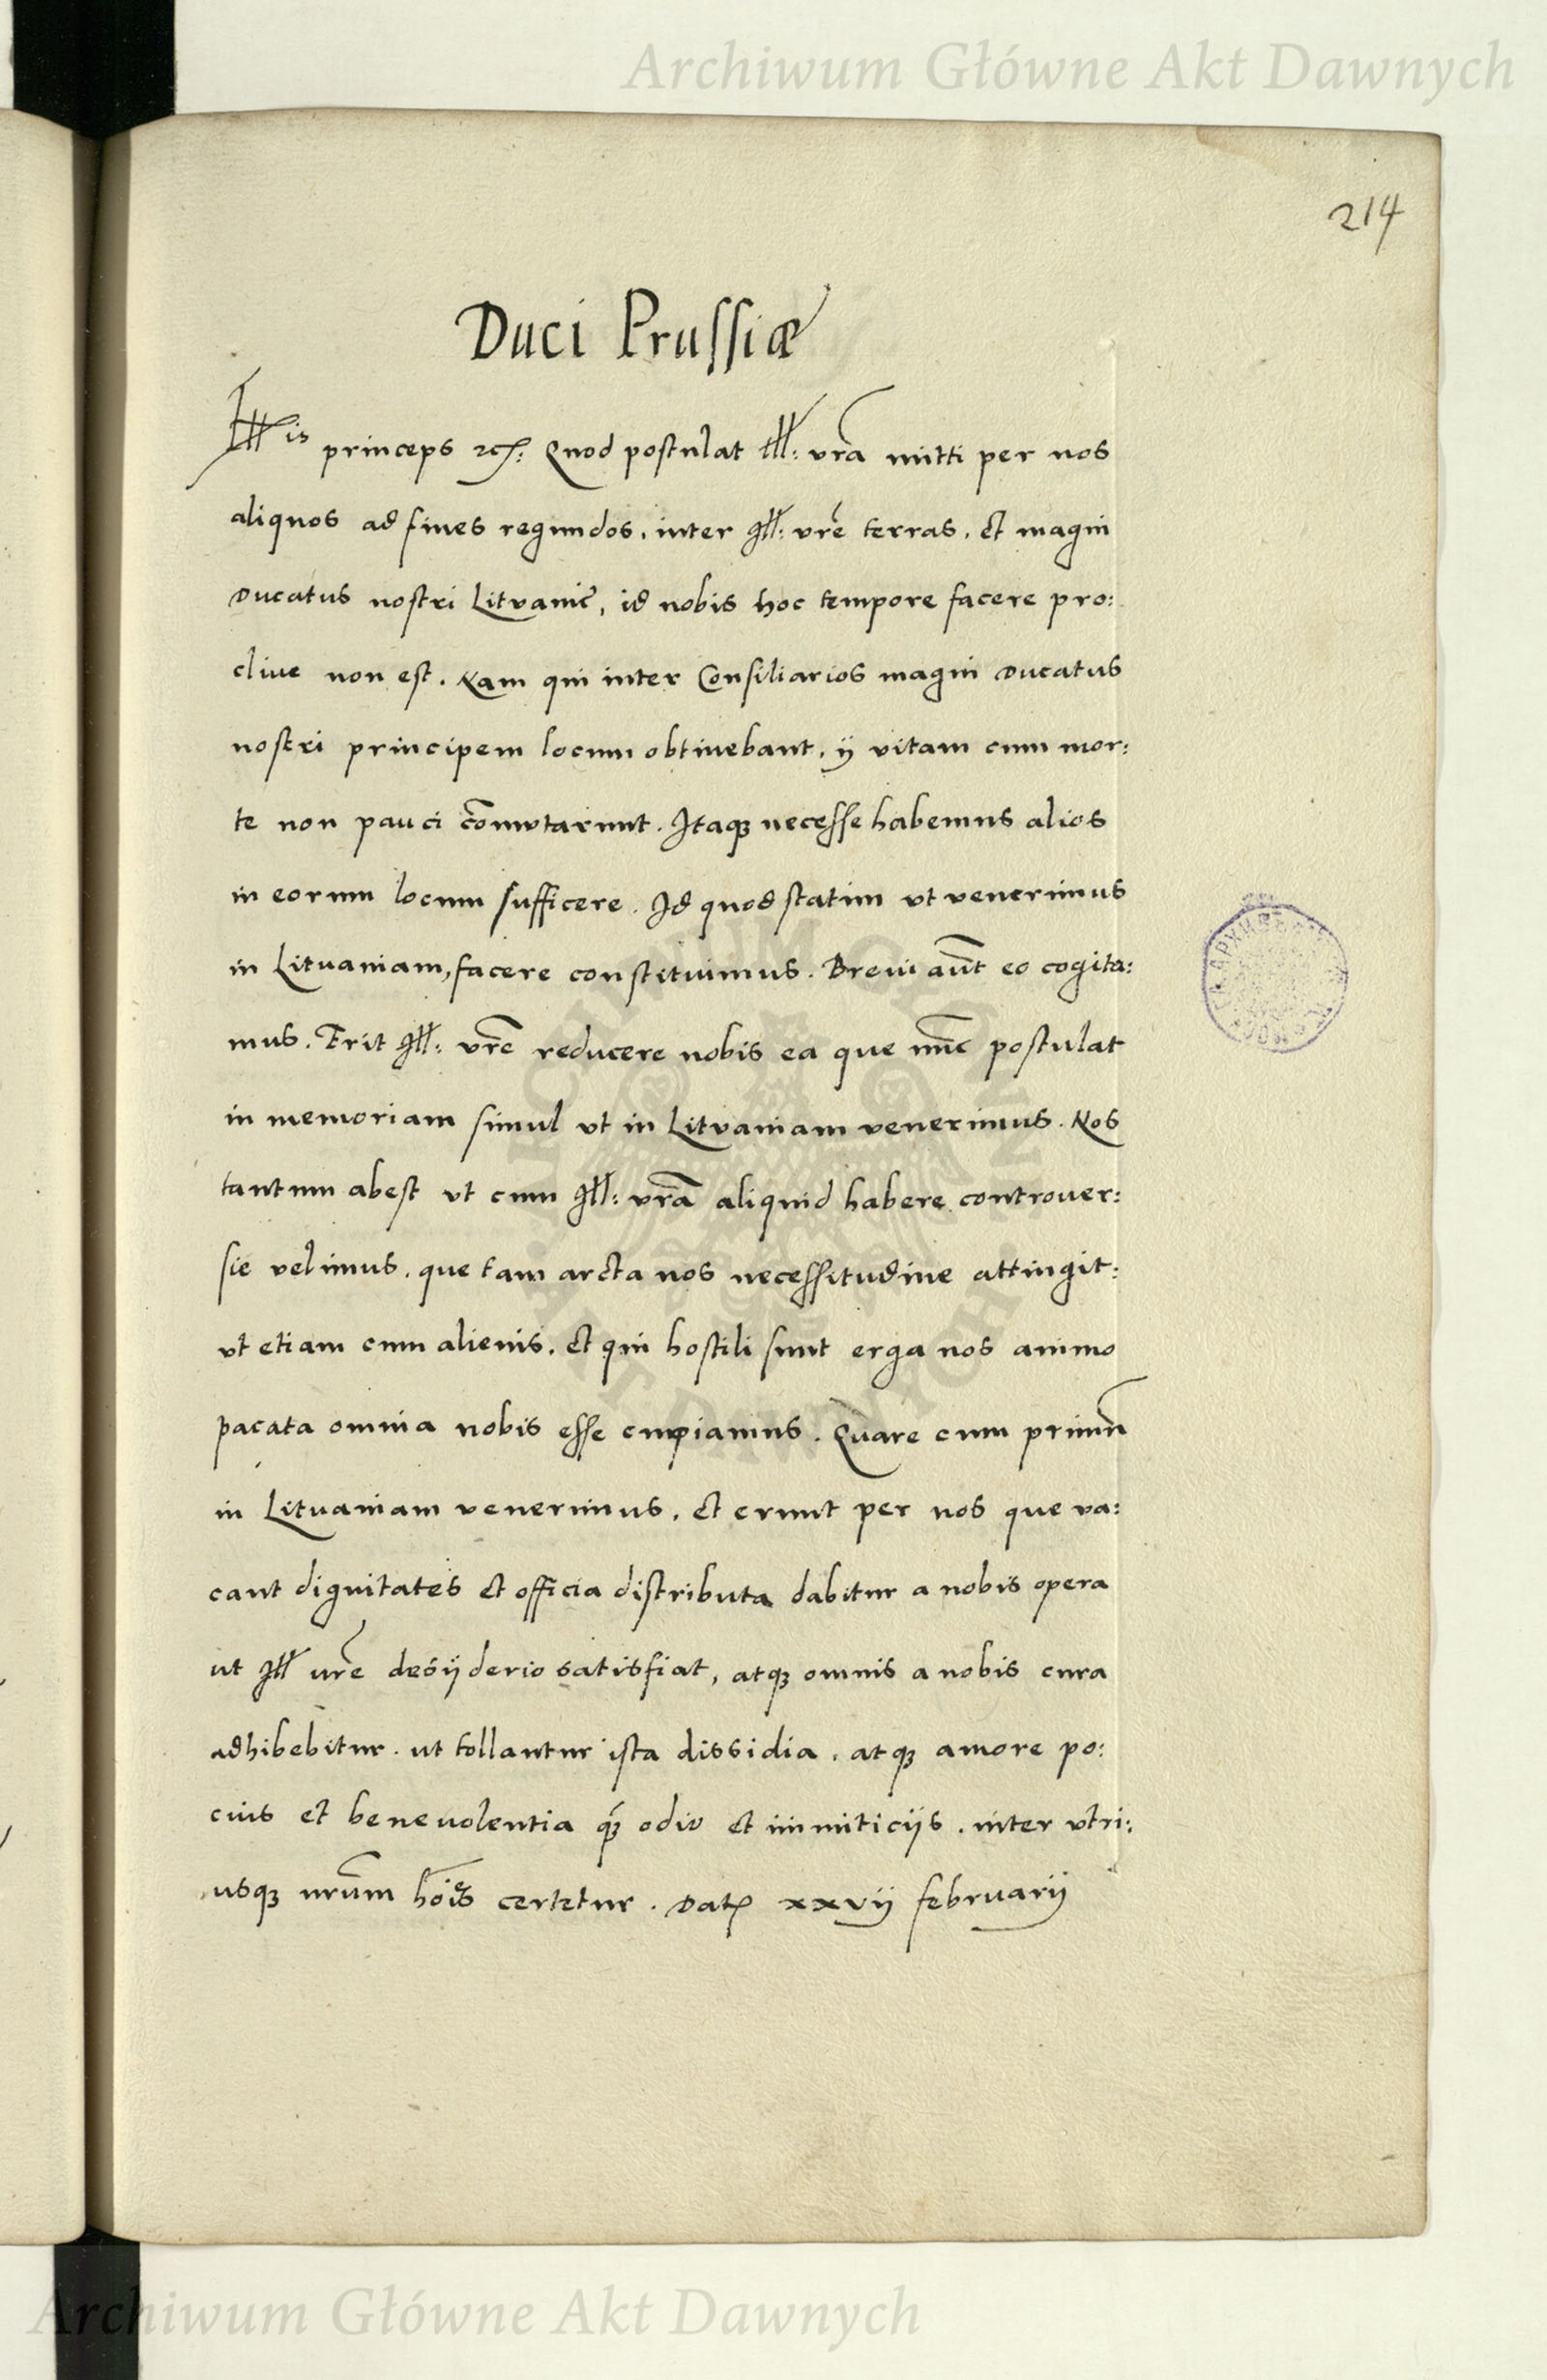 Archiwum Główne Akt Dawnych
214
Duci Prussiæ
Illis princeps etc: Quod postulat Ill: vra mitti per nos
aliquos ad fines regundos, inter Ill: vre terras, et magni
Ducatus nostri Litvanie, id nobis hoc tempore facere pro:
clive non est. Nam qui inter Consiliarios magni Ducatus
nostri principem locum obtinebant, ij vitam cum mor:
te non pauci comutarunt. Itaq necesse habemus alios
in eorum locum sufficere. Id quod statim vt venerimus
in Lituaniam, facere constituimus. Breui aut eo cogita:
mus. Erit Ill: vre reducere nobis ea que nunc postulat
in memoriam simul vt in Litvaniam venerimus. Nos
tantum abest vt cum Ill: vra aliquid habere controuer:
sie velimus, que tam arcta nos necessitudine attingit:
vt etiam cum alienis, et qui hostili sunt erga nos animo
pacata omnia nobis esse cupiamus. Quare cum primu
in Lituaniam venerimus, et erunt per nos que va:
cant dignitates et officia distributa dabitur a nobis opera
ut Ill vre desijderio satisfiat, atq omnis a nobis cura
adhibebitur. ut tollantur ista dissidia, atq amore po:
cius et beneuolentia q odio et inimiticijs. inter vtri:
usq nrum hoies certetur. Dat xxvij februarij
Archiwum Główne Akt Dawnych